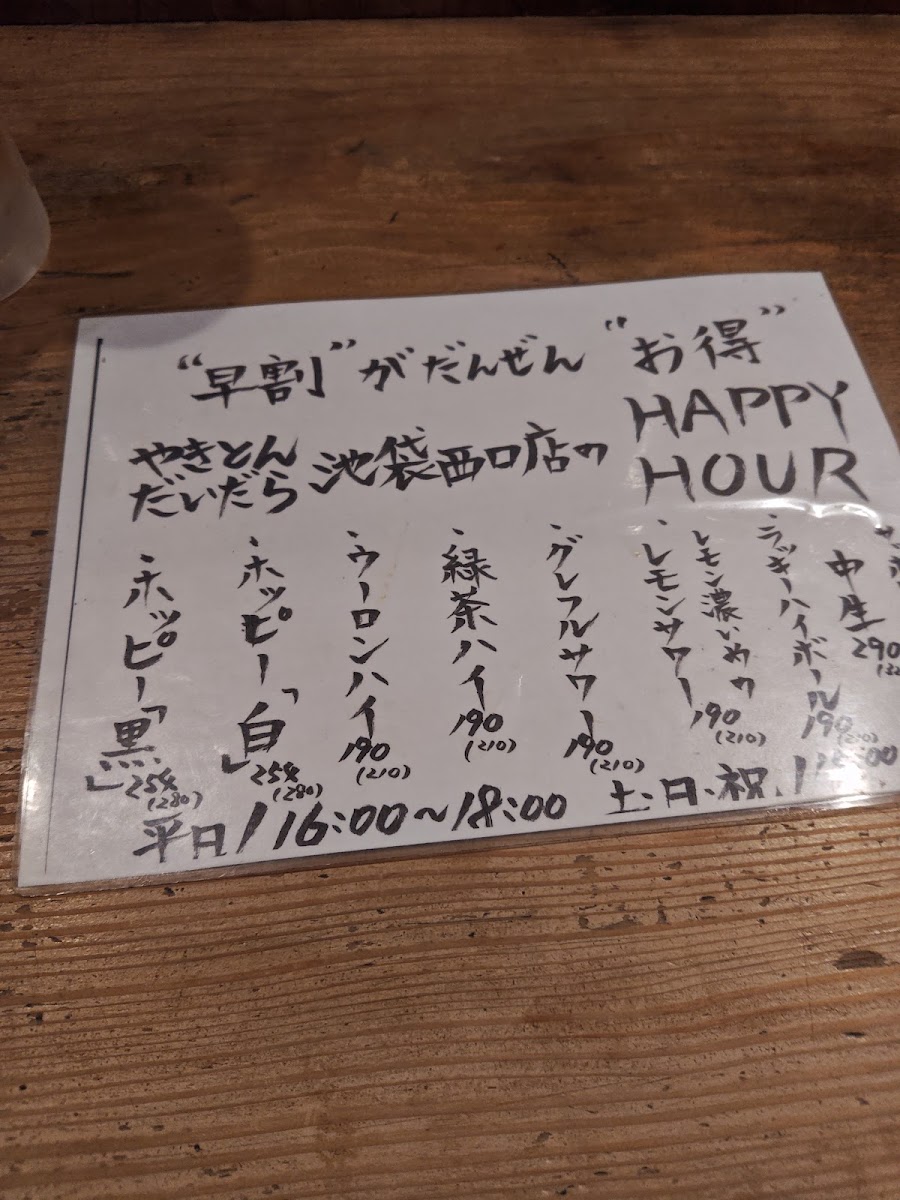 “早割”がだんぜん“お得”
やきとん
だいだら
池袋西口店の
HAPPY
HOUR
中生
290
・ラッキーハイボール
190
(210)
レモン濃いめの
・レモンサワー
190
(210)
・グレフルサワー
190
(210)
・緑茶ハイ
190
(210)
・ウーロンハイ
190
(210)
・ホッピー「白」
254
(280)
・ホッピー「黒」
254
(280)
平日/16:00～18:00
土・日・祝